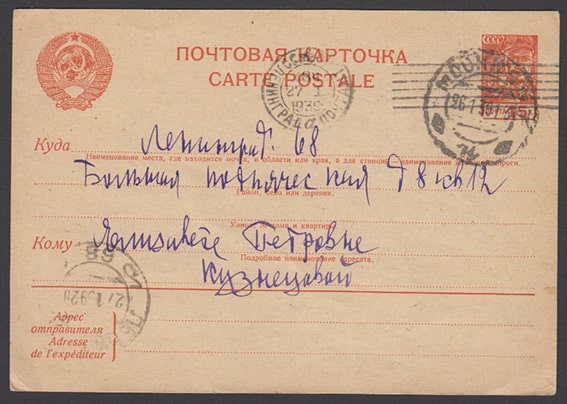 СССР
ПОЧТОВАЯ КАРТОЧКА
CARTE POSTALE
27 1
1939
МОСКВА
26 1 39
14
Куда Ленинград 68
Наименование места, где находится почта, и области или края, а для станции наименование
Большая подъячес кая д 8 кв 12
Район, село или деревня.
Улица, № дома и квартиры
Кому Елизавете Петровне
Подробное наименование адресата.
Кузнецовой
68
Адрес
отправителя
Adresse
de l'expéditeur